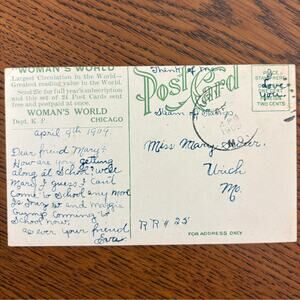 WOMAN'S WORLD
Largest Circulation in the World—
Greatest reading value in the World.
Send 25c for full year's subscription
and this set of 21 Post Cards sent
free and postpaid at once.
WOMAN'S WORLD
Dept. K. P. CHICAGO
April 9th 1909.
Dear friend Mary:
How are you getting
along at School? well
Mary I guess I Can't
Come to School any more
Is and Maggie
Gump Coming to
School now.
as ever your friend
Eva
Think of me
Post Card
PLACE
STAMP HERE
TWO CENTS
MO.
Miss Mary
Urich
Mo.
RR # 25
FOR ADDRESS ONLY